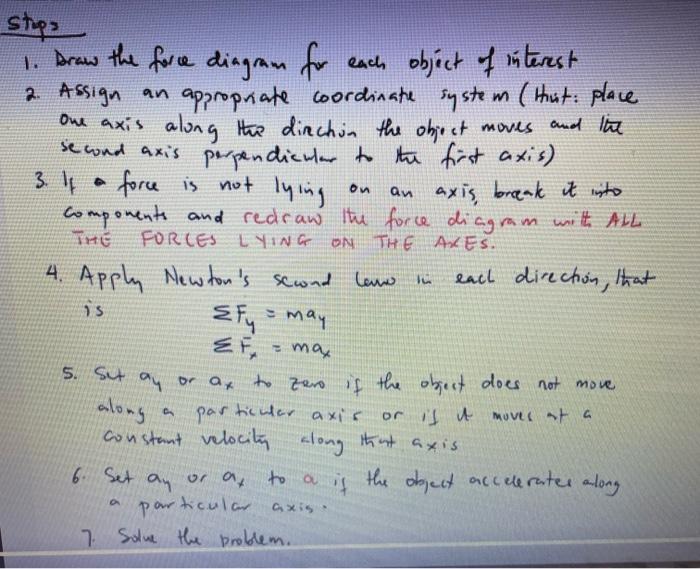 Steps
1. Draw the force diagram for each object of interest
2. Assign an appropriate coordinate system (Hint: place
one axis along the direction the object moves and the
second axis perpendicular to the first axis)
3. If a force is not lying on an axis, break it into
components and redraw the force diagram with ALL
THE FORCES LYING ON THE AXES.
4. Apply Newton's second law in each direction, that
is ΣFy = may
ΣFx = max
5. Set ay or ax to zero if the object does not move
along a particular axis or if it moves at a
constant velocity along that axis
6. Set ay or ax to a if the object accelerates along
a particular axis.
7. Solve the problem.